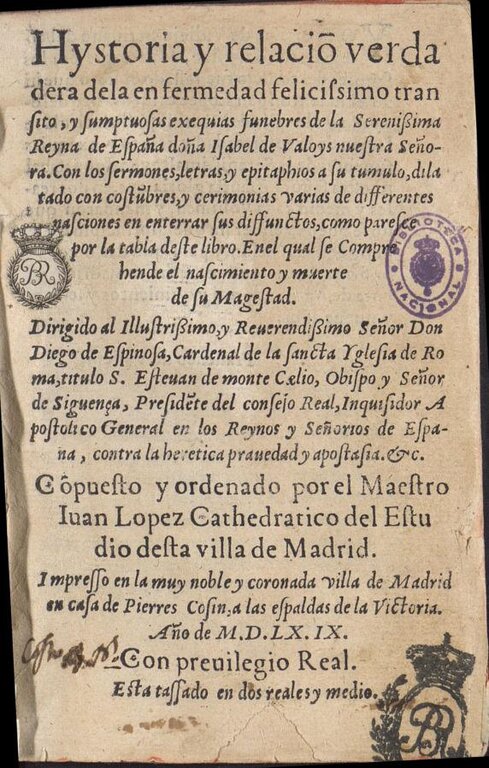 Hystoria y relaciõ verda
dera dela en fermedad felicissimo tran
sito, y sumptuosas exequias funebres de la Serenißima
Reyna de España doña Isabel de Valoys nuestra Seño-
ra. Con los sermones, letras, y epitaphios a su tumulo, dila
tado con costũbres, y cerimonias varias de differentes
nasciones en enterrar sus diffunctos, como paresce
por la tabla deste libro. Enel qual se Compre
hende el nascimiento y muerte
de su Magestad.
BR
BIBLIOTECA NACIONAL
Dirigido al Illustrißimo, y Reuerendißimo Señor Don
Diego de Espinosa, Cardenal de la sancta Yglesia de Ro
ma, titulo S. Esteuan de monte Cælio, Obispo y Señor
de Siguença, Presidẽte del consejo Real, Inquisidor A
postolico General en los Reynos y Señorios de Espa-
na, contra la heretica prauedad y apostasia. &c.
Cõpuesto y ordenado por el Maestro
Iuan Lopez Cathedratico del Estu
dio desta villa de Madrid.
Impresso en la muy noble y coronada villa de Madrid
en casa de Pierres Cosin, a las espaldas de la Victoria.
Año de M.D.LX.IX.
Con preuilegio Real.
Esta tassado en dos reales y medio.
BR